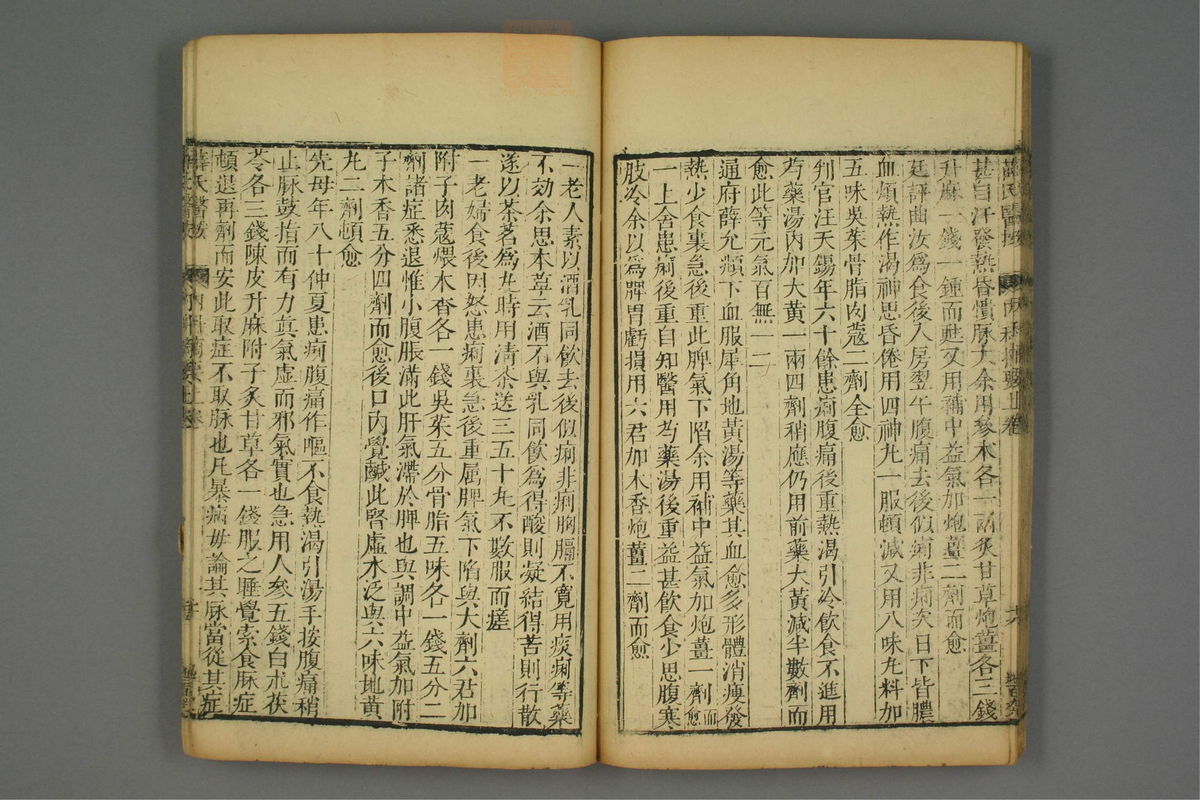 薛氏醫按
內科摘要上卷
甚自汗發熱昏憒脉大余用參朮各一兩炙甘草炮薑各三錢
升麻一錢一鍾而甦又用補中益氣加炮薑二劑而愈
廷評曲汝為食後入房翌午腹痛去後似痢非痢次日下皆膿
血煩熱作渴神思昏倦用四神丸一服頓減又用八味丸料加
五味吳茱骨脂肉蔻二劑全愈
判官汪天錫年六十餘患痢腹痛後重熱渴引冷飲食不進用
芍藥湯內加大黃一兩四劑稍應仍用前藥大黃減半數劑而
愈此等元氣百無一二
通府薛允頫下血服犀角地黃湯等藥其血愈多形體消瘦發
熱少食裏急後重此脾氣下陷余用補中益氣加炮薑一劑而愈
一上舍患痢後重自知醫用芍藥湯後重益甚飲食少思腹寒
肢冷余以為脾胃虧損用六君加木香炮薑二劑而愈
一老人素以酒乳同飲去後似痢非痢胸膈不寬用痰痢等藥
不効余思本草云酒不與乳同飲為得酸則凝結得苦則行散
遂以茶茗為丸時用清茶送三五十丸不數服而瘥
一老婦食後因怒患痢裏急後重屬脾氣下陷與大劑六君加
附子肉蔻煨木香各一錢吳茱五分骨脂五味各一錢五分二
劑諸症悉退惟小腹脹滿此肝氣滯於脾也與調中益氣加附
子木香五分四劑而愈後口內覺鹹此腎虛水泛與六味地黃
丸二劑頓愈
先母年八十仲夏患痢腹痛作嘔不食熱渴引湯手按腹痛稍
止脉鼓指而有力真氣虛而邪氣實也急用人參五錢白朮茯
苓各三錢陳皮升麻附子炙甘草各一錢服之睡覺索食脉症
頓退再劑而安此取症不取脉也凡暴病毋論其脉當從其症
薛氏醫按
內科摘要上卷